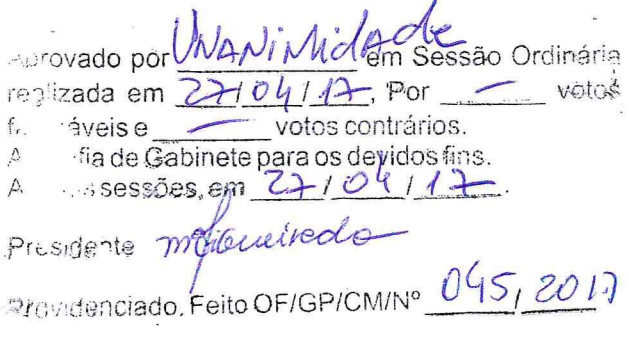 Aprovado por UNANiMidAde em Sessão Ordinária
realizada em 27/04/17, Por — votos
f áveis e — votos contrários.
A fia de Gabinete para os devidos fins.
A sessões, em 27/04/17.
Presidente
Providenciado, Feito OF/GP/CM/Nº 045, 2017